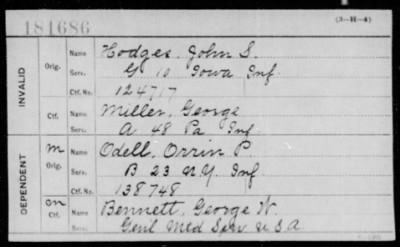 181686
(3-H-4)
INVALID
Orig.
Name Hodges, John S.
Serv. G 10 Iowa Inf
Ctf. No. 124717
Ctf.
Name Miller, George
Serv. A 48 Pa Inf
DEPENDENT
m
Orig.
Name Odell, Orrin P.
Serv. B 23 N.Y. Inf
Ctf. No. 138748
on
Ctf.
Name Bennett, George W.
Serv. Genl Med Serv U.S.A.